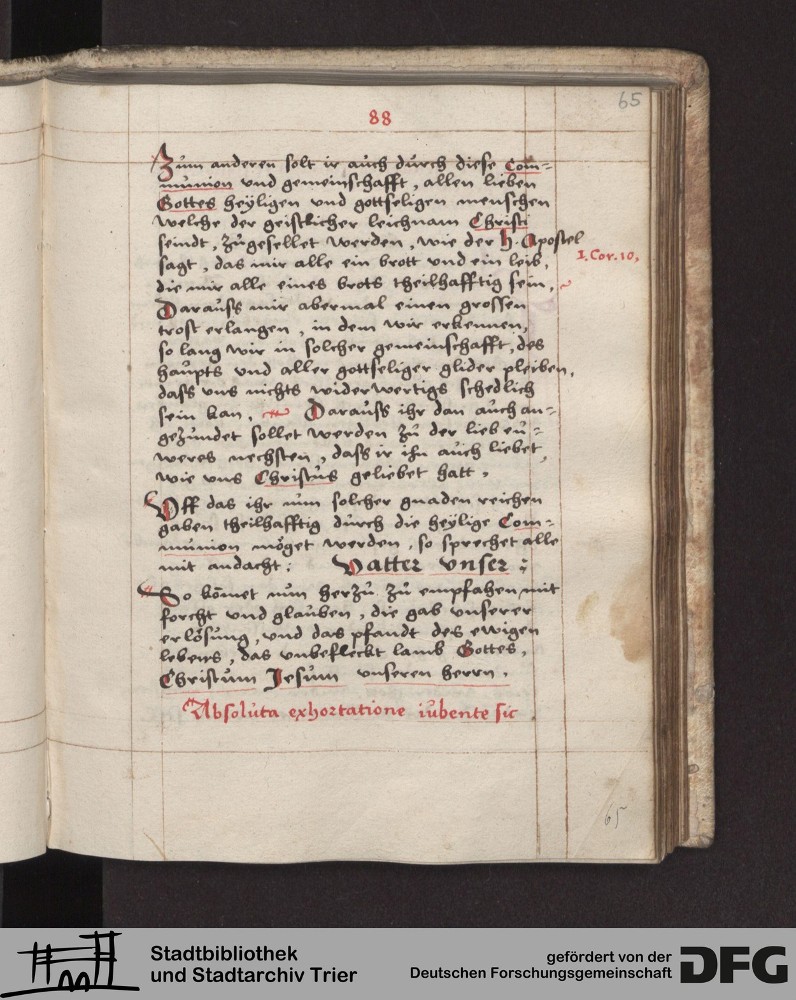 65
88
Zum anderen solt ir auch durch diese Com=
munion vnd gemeinschafft, allen lieben
Gottes heyligen vnd gottseligen menschen
welche der geistlicher leichnam Christi
seindt, zugesellet werden, wie der H. Apostel
sagt, das mir alle ein brott vnd ein leib,
1. Cor. 10,
die mir alle eines brots theilhafftig sein,
Darauss mir abermal einen grossen
trost erlangen, in dem wir erkennen,
so lang wir in solcher gemeinschafft, des
haupts vnd aller gottseliger glider pleiben,
dass vns nichts widerwertigs schedlich
sein kan, Darauss ihr dan auch an=
gezundet sollet werden zu der lieb eu=
weres nechsten, dass ir ihn auch liebet,
wie vns Christus geliebet hatt,
Vff das ihr nun solcher gnaden reichen
gaben theilhafftig durch die heylige Com=
munion möget werden, so sprechet alle
mit andacht: Vatter vnser:
So kōmet nun herzu zu empfahen mit
forcht vnd glauben, die gab vnserer
erlösung, vnd das pfandt des ewigen
lebens, das vnbefleckt lamb Gottes,
Christum Jesum vnseren herrn.
Absoluta exhortatione iubente sic
65
Stadtbibliothek
und Stadtarchiv Trier
gefördert von der
Deutschen Forschungsgemeinschaft
DFG